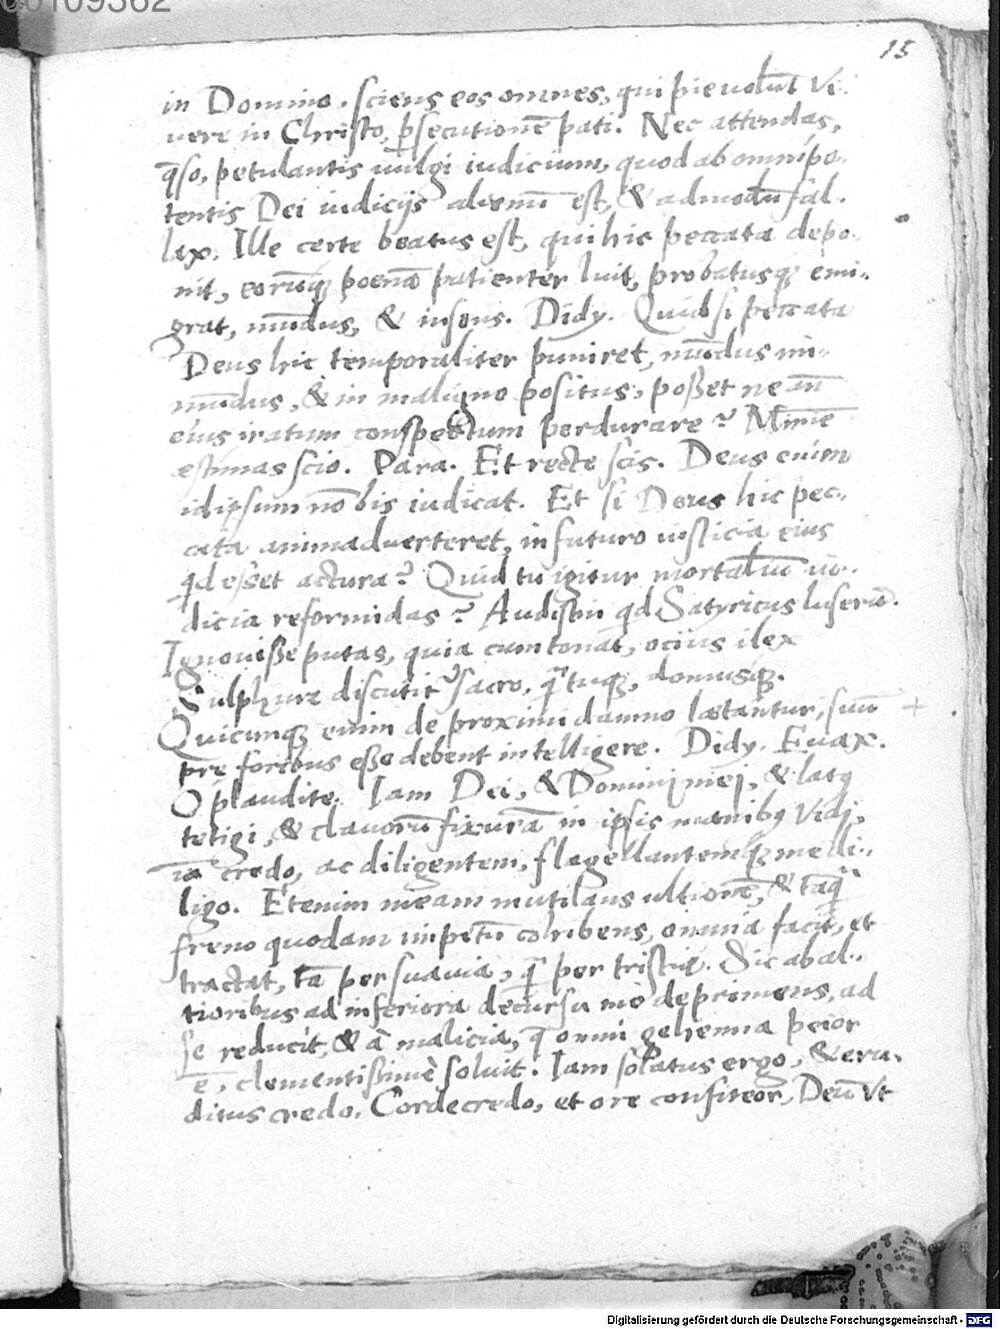 00109362
15
in Domino. sciens eos omnes, qui pie volūt vi-
uere in Christo, p̄secutionē pati. Nec attendas,
q̄so, petulantis vulgi iudicium, quod ab omnipo-
tentis Dei iudicijs alienū est, & admodū fal-
lax. Ille certe beatus est, qui hic peccata depo-
nit, eorūq; poenā patienter luit, probatusq; emi-
grat, mūdus, & insons. Didy. Quid si peccata
Deus hic temporaliter puniret, mūdus im-
mūdus, & in maligno positus, posset ne an̄
eius iratum conspectum perdurare? Minimē
estimas scio. Para. Et recte scis. Deus enim
idipsum nobis iudicat. Et si Deus hic pec-
cata animaduerteret, in futuro iusticia eius
qd esset actura? Quid tu igitur mortaliū iu-
dicia reformidas? Audistin qd Satyricus luserit.
Ignouisse putas, quia cum tonat, ocius ilex
Sulphure discutitr sacro, q̄ tuq;, domusq;.
Quicunq; enim de proximi damno lætantur, suū
pre foribus esse debent intelligere. Didy. Euax.
O plaudite. Iam Dei, & Domini mei, & latq
tetigi, & clauorū fixurā in ipsis manibq vidi,
iā credo, ac diligentem, flagellantemq; me di-
ligo. Etenim meam mutilans ultionē, & tāq̄
freno quodam impetū cohibens, omnia facit, et
tractat, tā per suauia, q̄ per tristia. Sic ab al-
tioribus ad inferiora decursu me deprimens, ad
se reducit, & à malicia, q̄ omni gehenna peior
ē, clementissimè soluit. Iam solatus ergo, & eru-
ditus credo. Corde credo, et ore confiteor, Deū vt
Digitalisierung gefördert durch die Deutsche Forschungsgemeinschaft - DFG